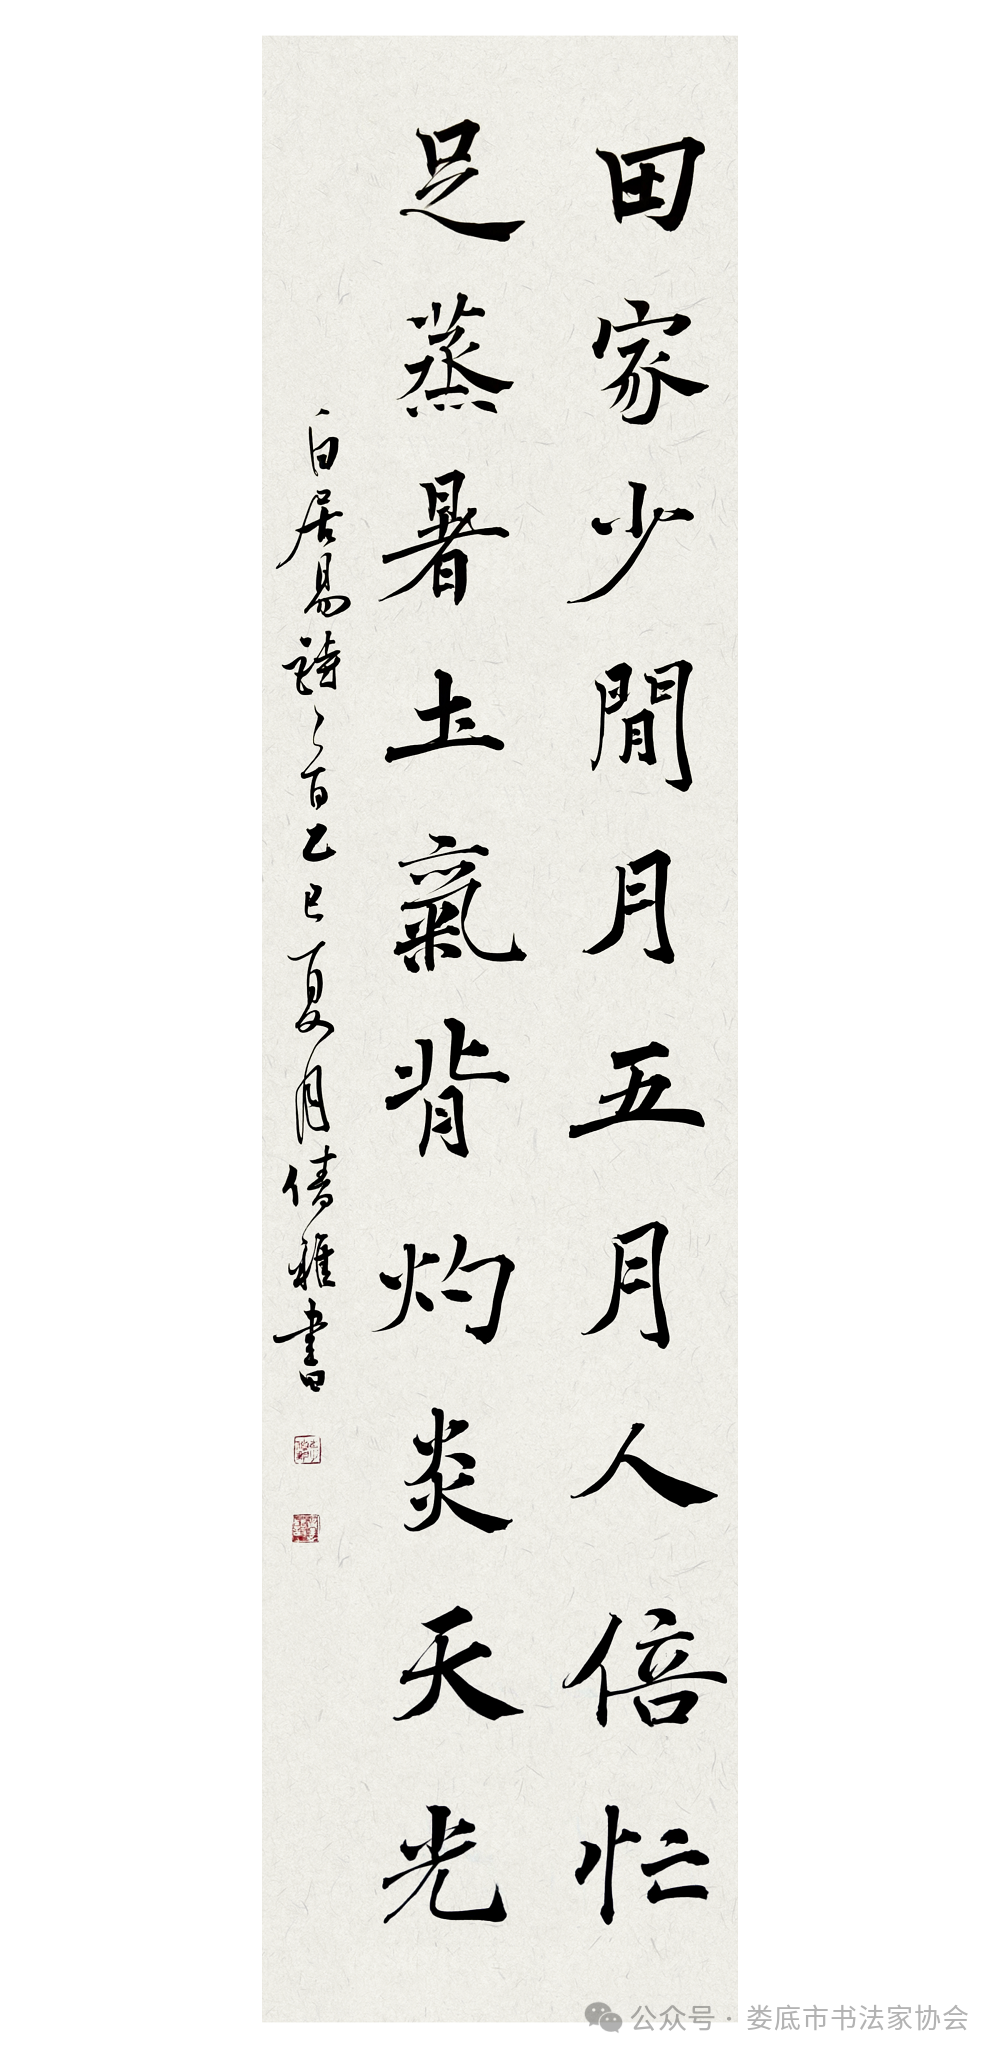 田家少閒月五月人倍忙
足蒸暑土氣背灼炎天光
白居易詩一首乙巳夏月倩雅書
公众号·娄底市书法家协会